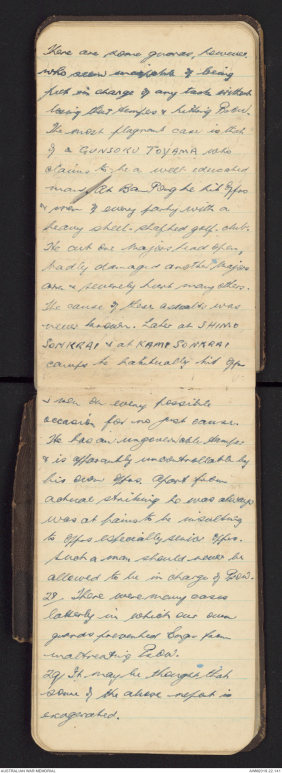 There are some guards, however
who seem incapable of being
put in charge of any task without
losing their tempers & hitting P.O.W.
The most flagrant case is that
of a GUNSOKU TOYAMA who
claims to be a well educated
man. At Ban Pong he hit Offrs
& men of every party with a
heavy steel-shafted golf club.
He cut one Majors head open,
badly damaged another Majors
arm & severely hurt many others.
The cause of these assaults was
never known. Later at SHIMO
SONKRAI & at KAMI SONKRAI
camps he habitually hit Offrs
& men on every possible
occasion for no just cause.
He has an ungovernable temper
& is apparently uncontrollable by
his own offrs. Apart from
actual striking he was always
was at pains to be insulting
to offrs especially senior offrs.
Such a man should never be
allowed to be in charge of P.O.W.
28. There were many cases
latterly in which our own
guards prevented Engrs from
maltreating P.O.W.
29/ It may be thought that
some of the above report is
exagerated.
AUSTRALIAN WAR MEMORIAL